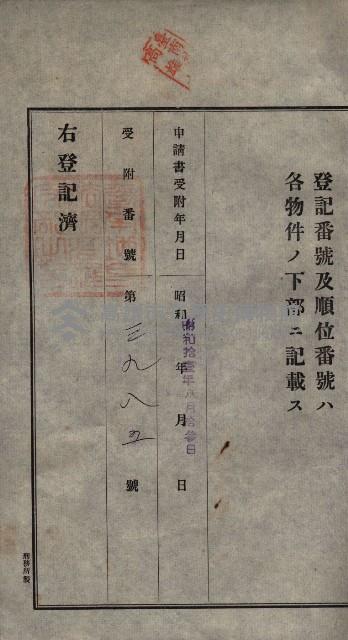 登記番號及順位番號ハ
各物件ノ下部ニ記載ス
申請書受附年月日 昭和 年 月 日
昭和拾壹年八月拾參日
受附番號 第三九八五號
右登記濟
刑務所製